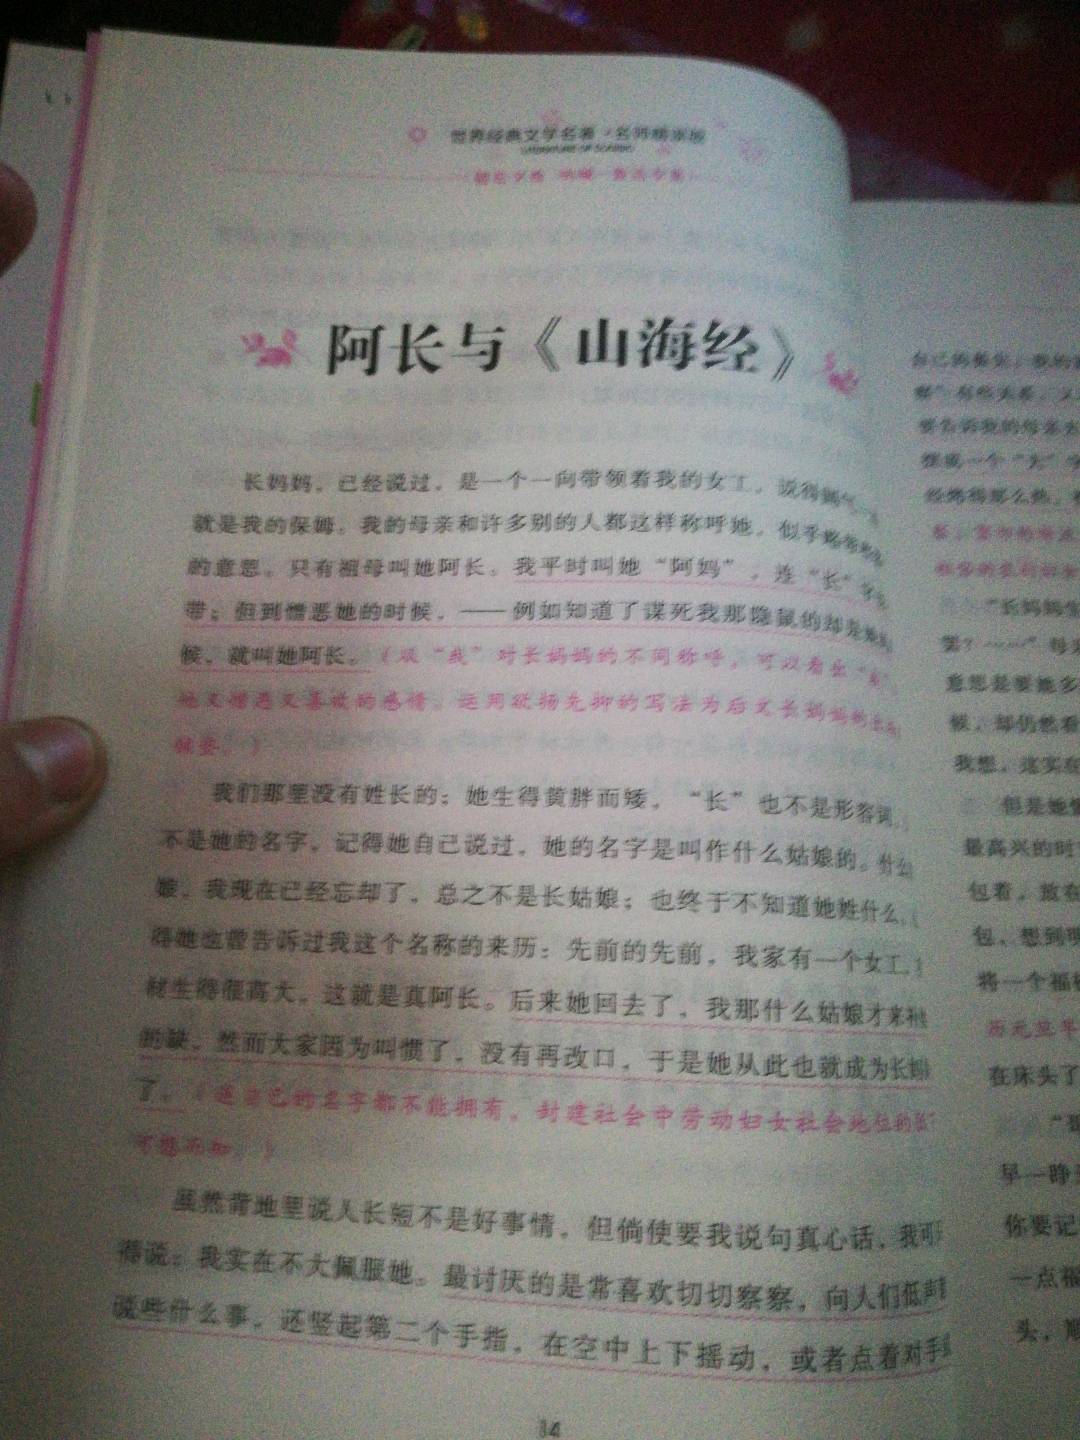 世界经典文学名著·名师精读版
阿长与《山海经》
长妈妈，已经说过，是一个一向带领着我的女工，说得阔气
就是我的保姆。我的母亲和许多别的人都这样称呼她，似乎略带
的意思。只有祖母叫她阿长。我平时叫她“阿妈”，连“长”字
带；但到憎恶她的时候，——例如知道了谋死我那隐鼠的却是她
候，就叫她阿长。（从“我”对长妈妈的不同称呼，可以看出“我
她又憎恶又喜欢的感情。运用欲扬先抑的写法为后文长妈妈的出
铺垫。）
我们那里没有姓长的；她生得黄胖而矮，“长”也不是形容词。
不是她的名字，记得她自己说过，她的名字是叫作什么姑娘的。什么
娘，我现在已经忘却了，总之不是长姑娘；也终于不知道她姓什么。
得她也曾告诉过我这个名称的来历：先前的先前，我家有一个女工，
材生得很高大，这就是真阿长。后来她回去了，我那什么姑娘才来补
的缺，然而大家因为叫惯了，没有再改口，于是她从此也就成为长妈
了。（连自己的名字都不能拥有，封建社会中劳动妇女社会地位的低
可想而知。）
虽然背地里说人长短不是好事情，但倘使要我说句真心话，我可
得说：我实在不大佩服她。最讨厌的是常喜欢切切察察，向人们低声
说些什么事，还竖起第二个手指，在空中上下摇动，或者点着对手
14
自己的鼻尖。我的
察”有些关系。又
要告诉我的母亲去
摆成一个“大”字
经烤得那么热。
“长妈妈生
罢？……”母
意思是要她多
候，却仍然看
我想，这实在
但是她
最高兴的时
包着，放在
包，想到明
将一个福橘
历元旦早
在床头了
早一睁
你要记
一点福
头，